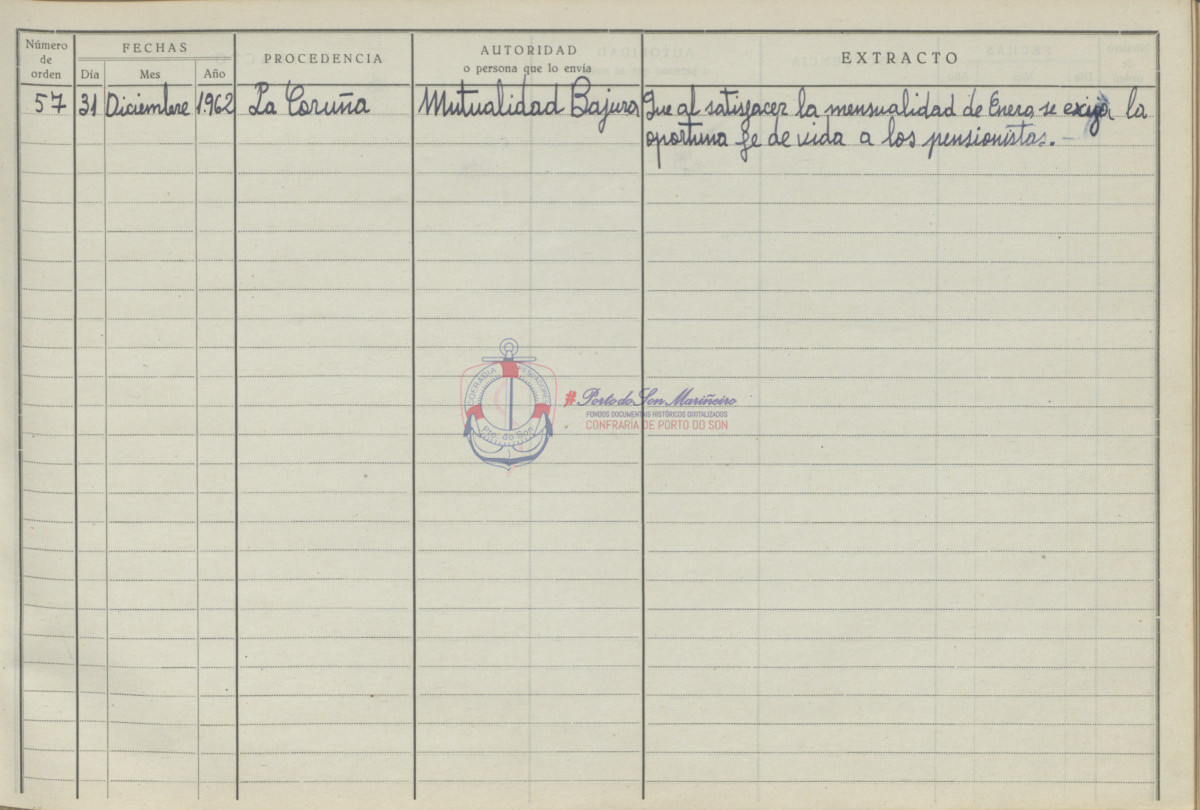 Número de orden
FECHAS
Día Mes Año
PROCEDENCIA
AUTORIDAD
o persona que lo envía
EXTRACTO
57 31 Diciembre 1.962 La Coruña Mutualidad Bajura Que al satisfacer la mensualidad de Enero, se exija la
oportuna fe de vida a los pensionistas. –
COFRADIA PESCADORES
Pto. do Son
#Porto do Son Mariñeiro
FONDOS DOCUMENTAIS HISTÓRICOS DIXITALIZADOS
CONFRARÍA DE PORTO DO SON